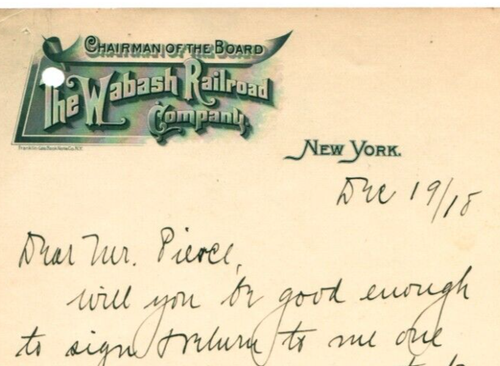 CHAIRMAN OF THE BOARD
The Wabash Railroad
Company,
NEW YORK.
Dec 19/18
Dear Mr. Pierce,
will you be good enough
to sign & return to me one